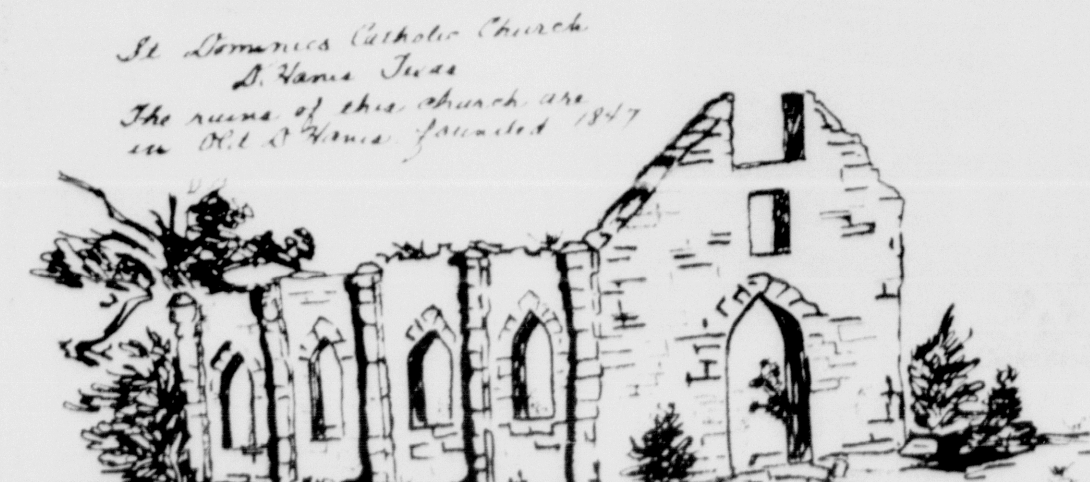 St Dominics Catholic Church
D'Hanis Texas
The ruins of this church are
in Old D'Hanis. founded 1847